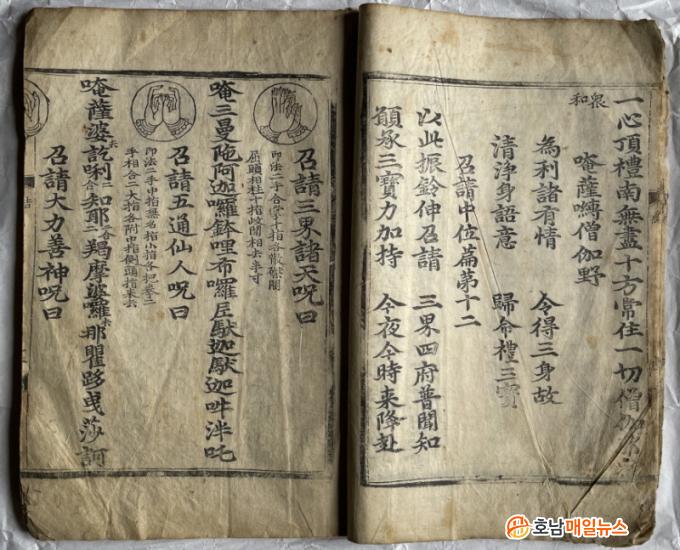 一心頂禮南無盡十方常住一切僧伽
衆和
唵薩嚩僧伽野
為利諸有情 令得三身故
清淨身語意 歸命禮三寶
召請中位篇第十二
以此振鈴伸召請 三界四府普聞知
願承三寶力加持 今夜今時来降赴
召請三界諸天呪曰
印法二手合掌十指各散磔開
屈頭相柱十指歧間相去半寸
唵三曼陁阿迦囉鉢哩布囉尼馱迦馱迦吽泮吒
召請五通仙人呪曰
印法二手中指無名指小指各把拳二
手相合二大指各附中指側頭指来去
唵薩婆訖唎二合知耶二合羯摩婆囉去那瞿路曳莎訶
召請大力善神呪曰
호남매일뉴스